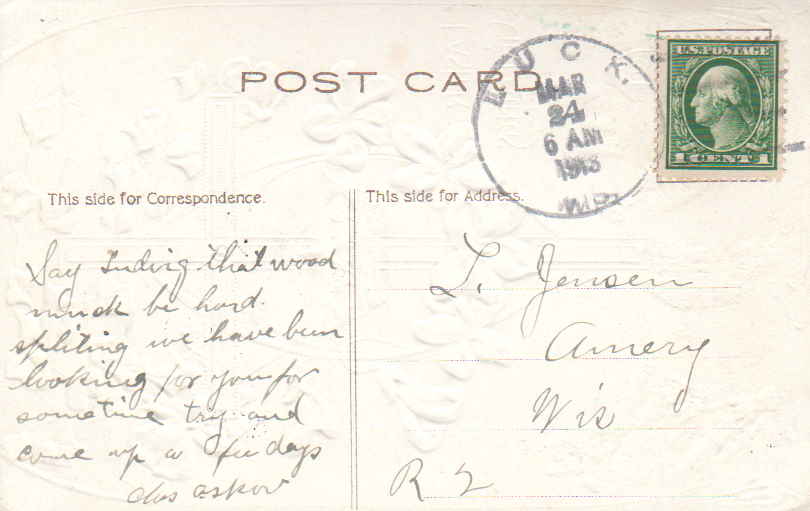 POST CARD
LUCK,
MAR
24
6 AM
1913
WIS.
U.S. POSTAGE
1 CENTS 1
This side for Correspondence.
This side for Address.
Say Ludvig that wood
must be hard
spliting we have been
looking for you for
sometime try and
come up a few days
L. Jensen
Amery
Wis
R 2